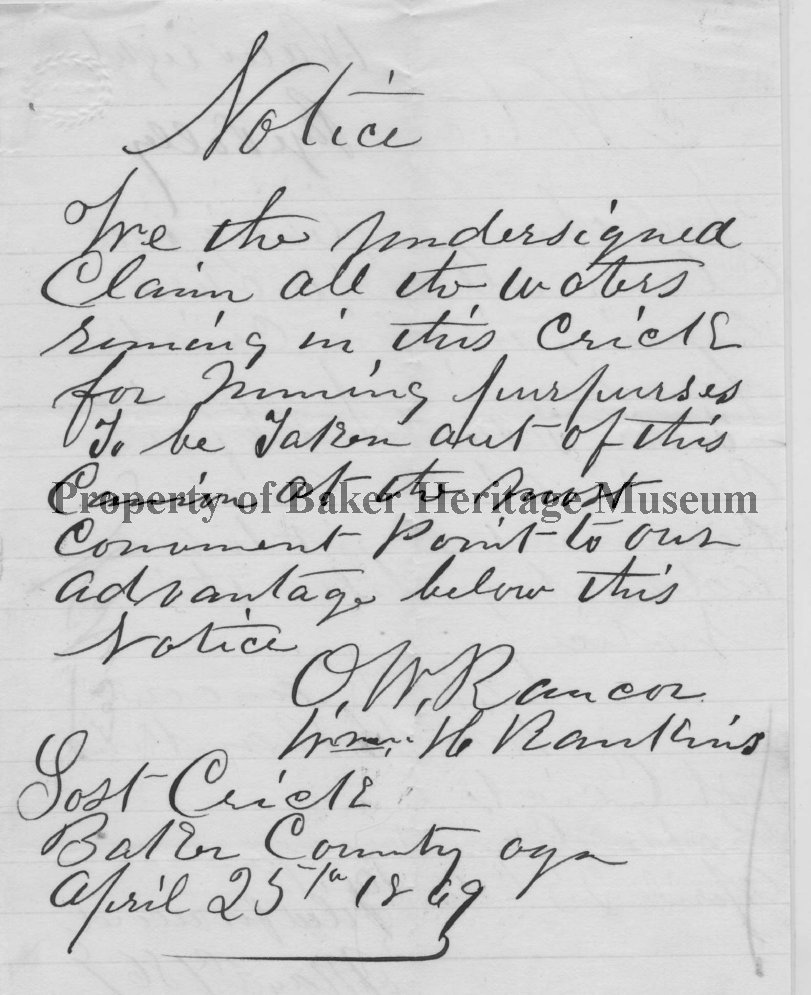 Notice
We the undersigned
Claim all the waters
runing in this Crick
for mining purpurses
To be Taken out of this
Canion at the most
Property of Baker Heritage Museum
Convinent Point to our
advantage below this
Notice
O. W. Rancor
Wm. H Rankins
Lost Crick
Baker County ogn
April 25th 1869